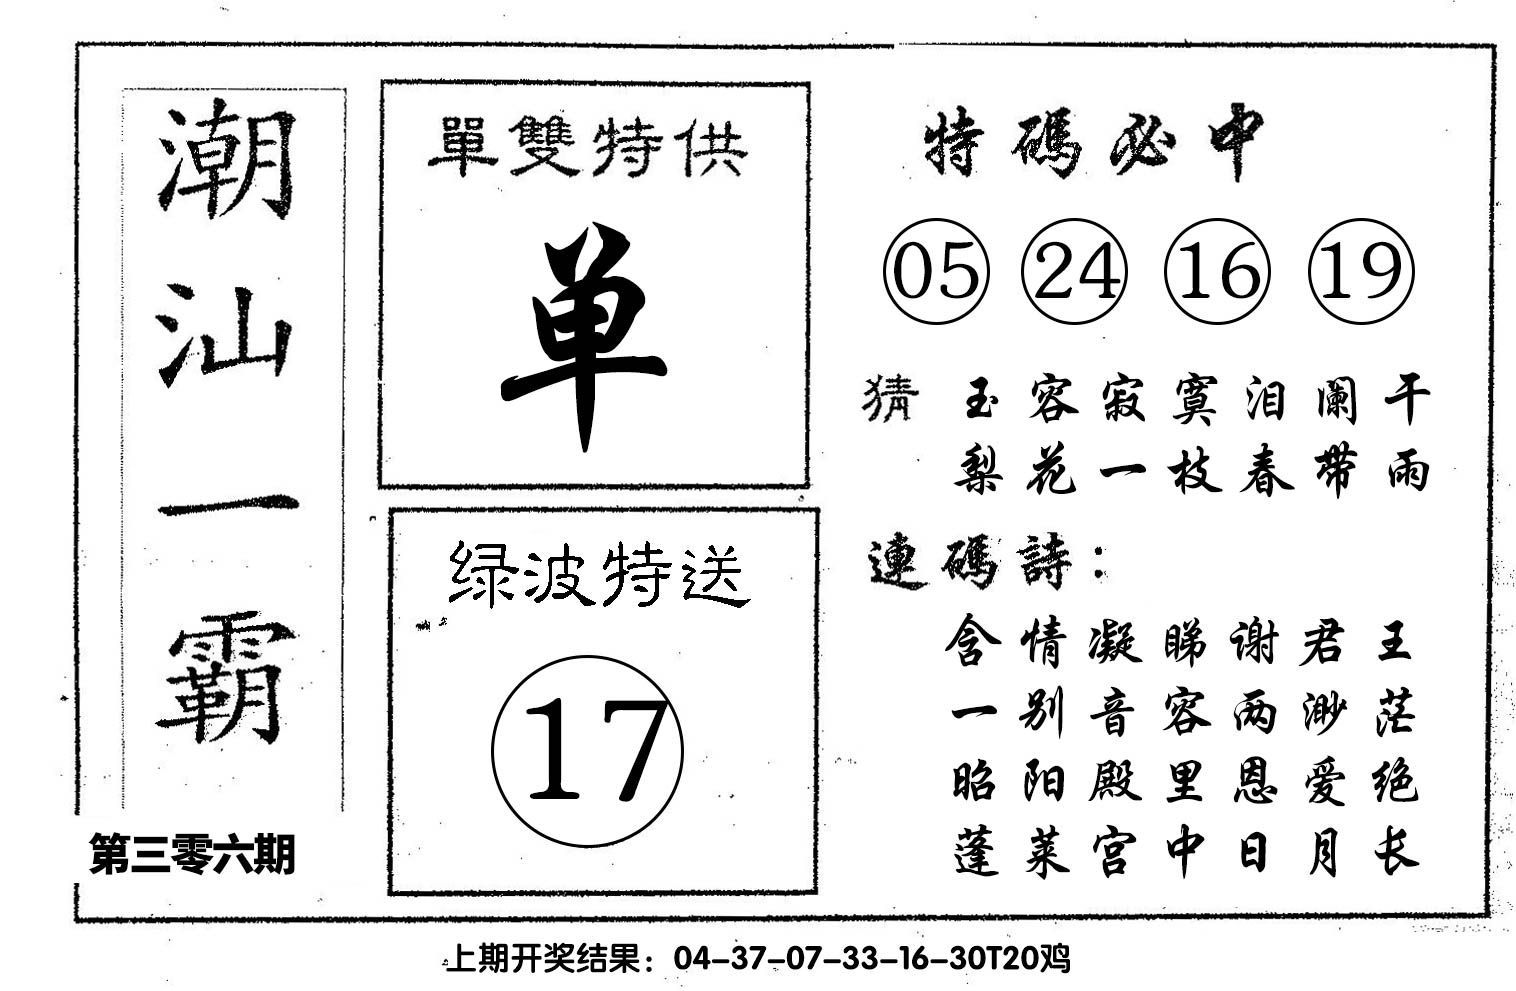 潮汕一霸
第三零六期
單雙特供
单
绿波特送
17
特碼必中
05 24 16 19
猜 玉容寂寞泪阑干
梨花一枝春带雨
連碼詩：
含情凝睇谢君王
一别音容两渺茫
昭阳殿里恩爱绝
蓬莱宫中日月长
上期开奖结果：04-37-07-33-16-30T20鸡